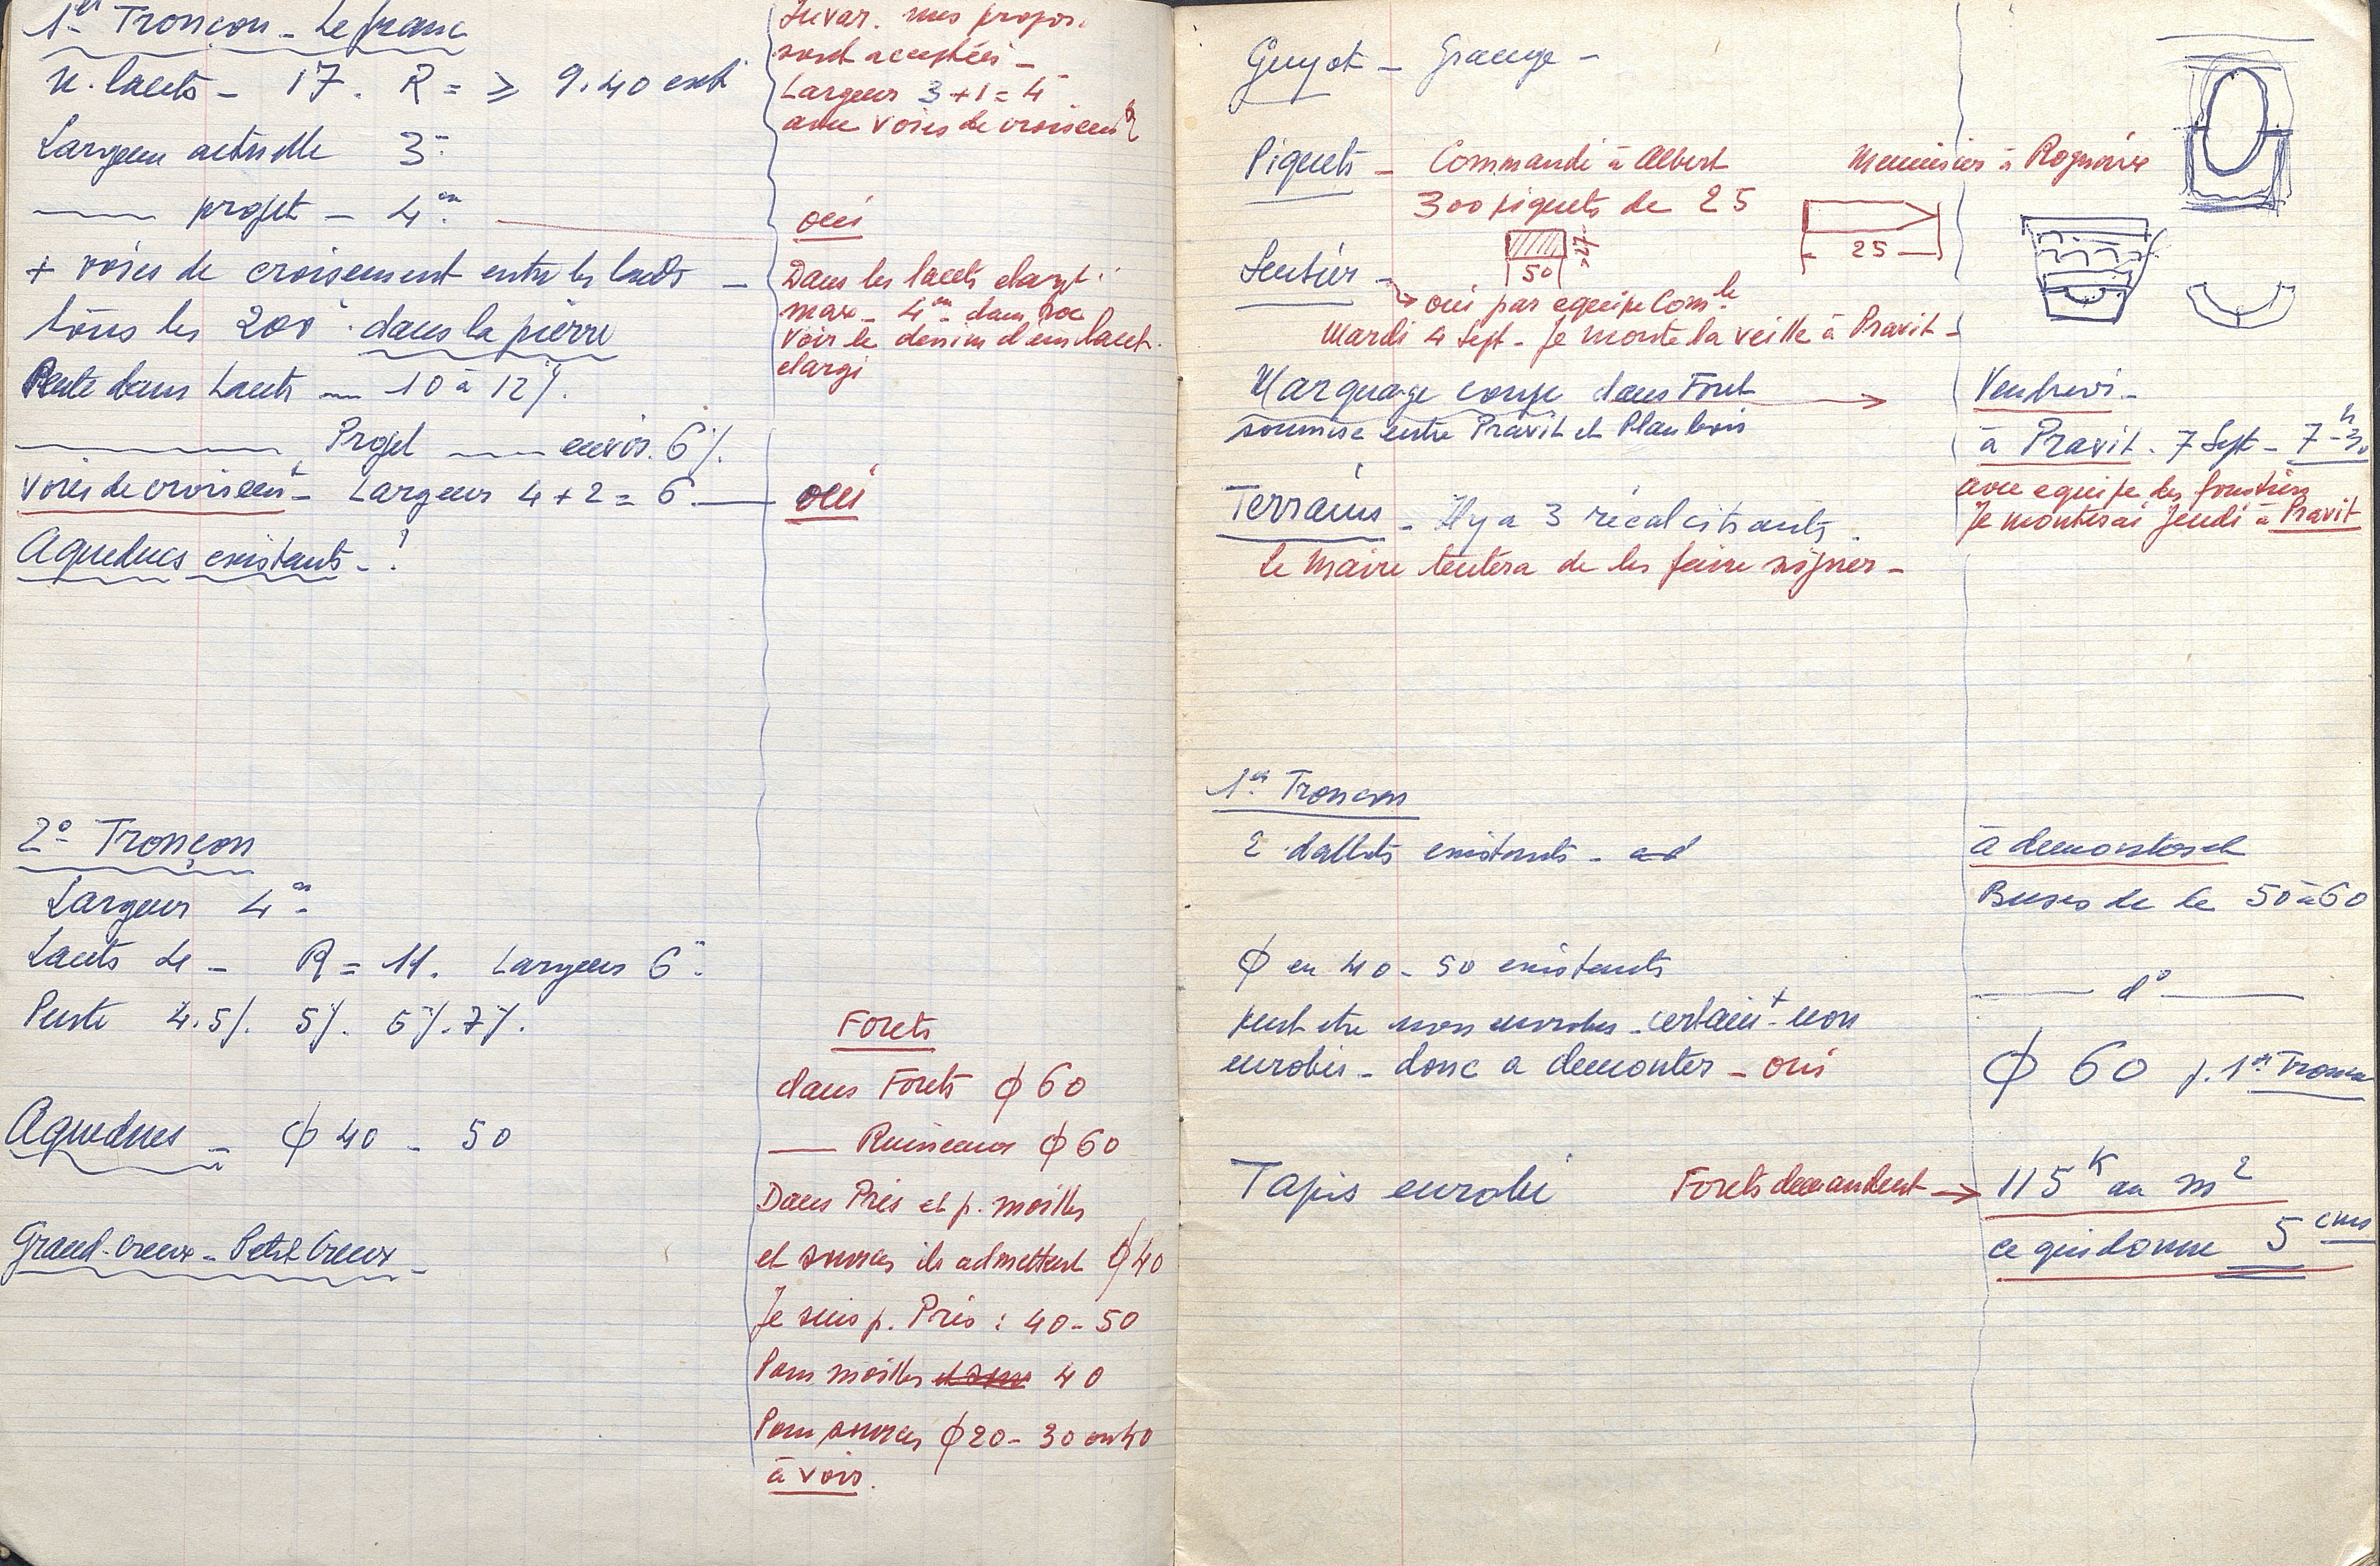 1er Tronçon - Lefranc
n. lacets - 17. R = ≥ 9.40 ext
Largeur actuelle 3m
—— projet - 4m
+ voies de croisement entre les lacets -
tous les 200m dans la pierre
Pente dans Lacets — 10 à 12%.
———— Projet —— envir. 6%.
Voies de croisemt - Largeur 4 + 2 = 6 ——
Aqueducs existants - !
mes propos.
sont acceptées -
Largeur 3 + 1 = 4m
avec voies de croisemt
oui
Dans les lacets elargt.
max - 4m dans roc
Voir le dessin d'un lacet
elargi
oui
2o Tronçon
Largeur 4m
Lacets de - R = 11. Largeur 6m
Pente 4.5%. 5%. 6%. 7%.
Aqueducs - ϕ 40 - 50
Grand-Creux - Petit Creux -
Forets
dans Forets ϕ 60
—— Ruisseaux ϕ 60
Dans Prés et p. moilles
et sources ils admettent ϕ 40
Je suis p. Prés : 40 - 50
Pour moilles 40
Pour sources ϕ 20 - 30 ou 40
à voir.
Guyot - Grange -
Piquets - Commandé à Albert
Menuisier à
300 piquets de 25
50
27
25
Sentier -
oui par equipe Comle
Mardi 4 Sept - Je monte la veille à Pravit -
Marquage coupe dans Foret
soumise entre Pravit et Planbois
Vendredi -
à Pravit. 7 Sept - 7h-30
avec equipe des forestiers
Je monterai Jeudi à Pravit
Terrains - Il y a 3 récalcitrants.
Le Maire tentera de les faire signer -
1er Tronçon
2 dallots existants -
à demonter et
Buses de 50 à 60
ϕ en 40 - 50 existants
—— do ——
peut etre non enrobes - certaint non
enrobés - donc a demonter - oui
ϕ 60 p. 1er Tronçon
Tapis enrobé
Forets demandent → 115K au m2
ce qui donne 5 cms